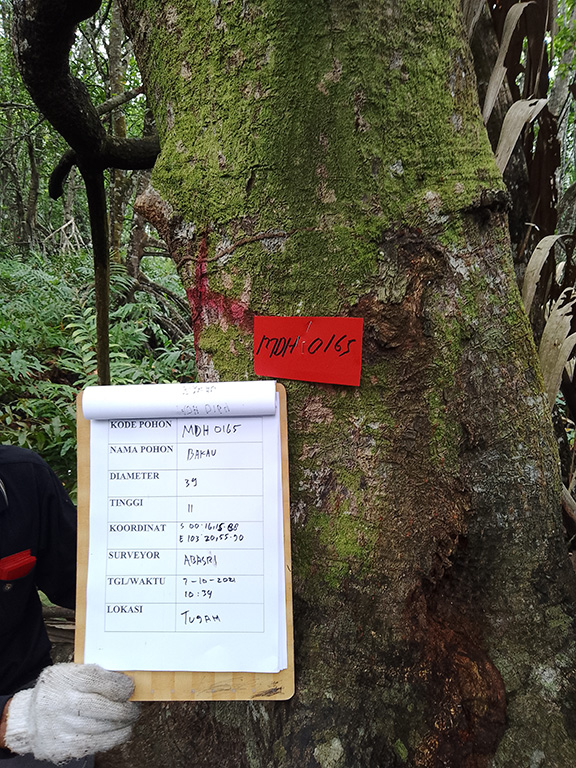 MDH 0165
KODE POHON MDH 0165
NAMA POHON BAKAU
DIAMETER 39
TINGGI 11
KOORDINAT S 00.16,15.88
E 103 20,55.90
SURVEYOR ABASRI
TGL/WAKTU 7-10-2021
10:39
LOKASI TUGAM